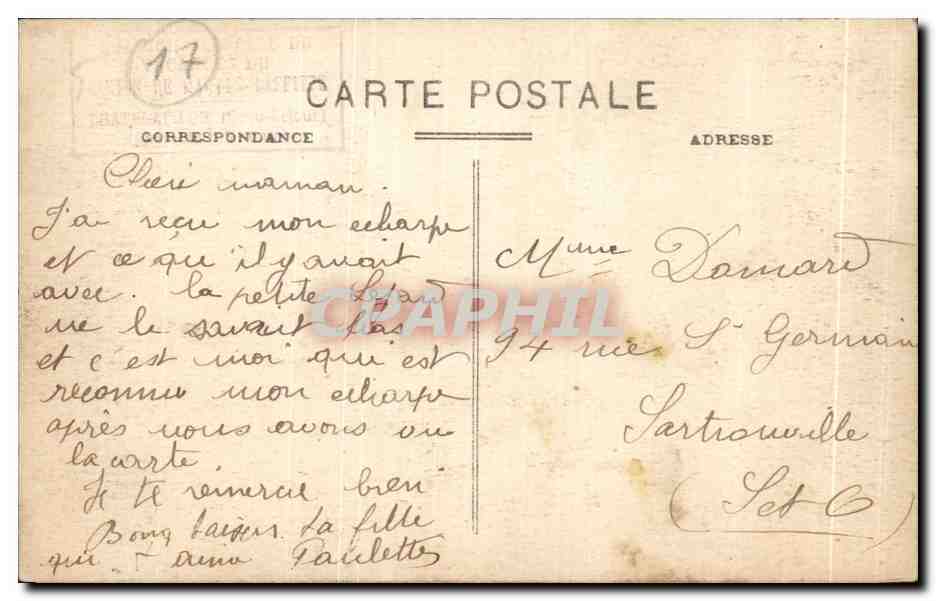 17
CARTE POSTALE
CORRESPONDANCE
ADRESSE
Cheri maman.
J'ai reçu mon echarpe
et ce qu'il y avait
avec. la petite
ne le savait pas
et c'est moi qui est
reconnu mon echarpe
après nous avons vu
la carte.
Je te remercie bien
Bons baisers ta fille
qui t'aime Paulette
Mme Domard
94 rue St Germain
Sartrouville
(S et O)
CPAPHIL